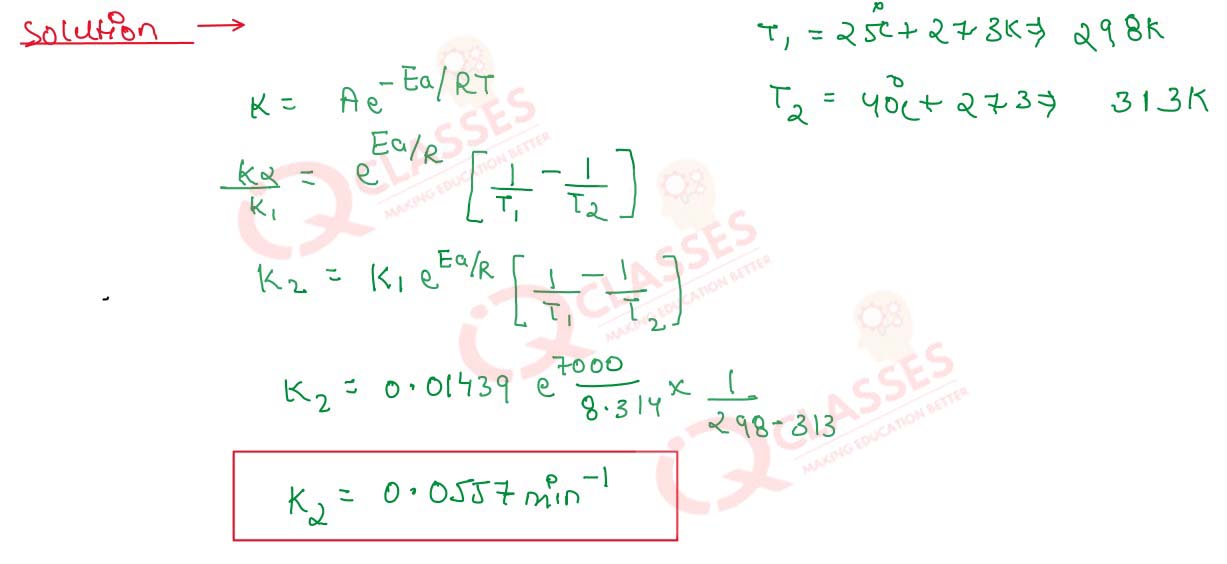 Solution →
T₁ = 25°C + 273K ⇒ 298K
T₂ = 40°C + 273 ⇒ 313K
K = Ae^-Ea/RT
K2/K₁ = e^Ea/R [1/T₁ - 1/T₂]
K₂ = K₁ e^Ea/R [1/T₁ - 1/T₂]
K₂ = 0.01439 e^7000/8.314 × 1/298-313
K₂ = 0.0557 min⁻¹
IQ CLASSES
MAKING EDUCATION BETTER
IQ CLASSES
MAKING EDUCATION BETTER
IQ CLASSES
MAKING EDUCATION BETTER